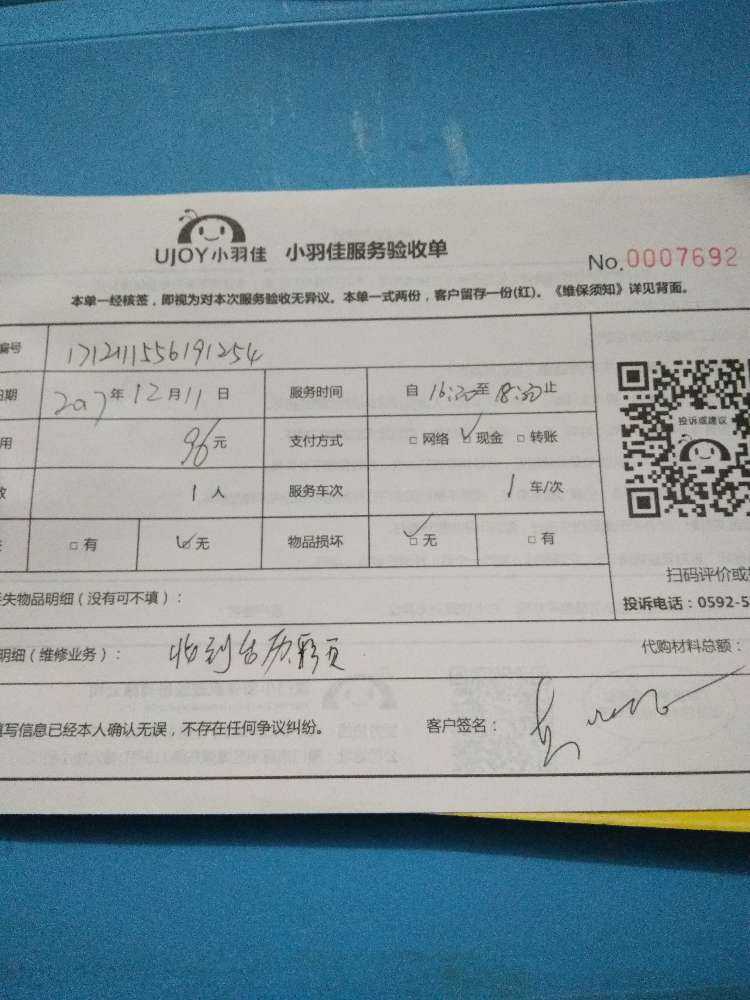 UJOY小羽佳 小羽佳服务验收单
No.0007692
本单一经核签，即视为对本次服务验收无异议。本单一式两份，客户留存一份(红)。《维保须知》详见背面。
编号 1712111556191254
日期 2017年12月11日 服务时间 自16:30至18:30止
用 96元 支付方式 □网络 ☑现金 □转账
数 1人 服务车次 1车/次
□有 ☑无 物品损坏 ☑无 □有
投诉或建议
扫码评价或
投诉电话：0592-5
失物品明细（没有可不填）：
明细（维修业务）： 收到台历彩页 代购材料总额：
填写信息已经本人确认无误，不存在任何争议纠纷。 客户签名：